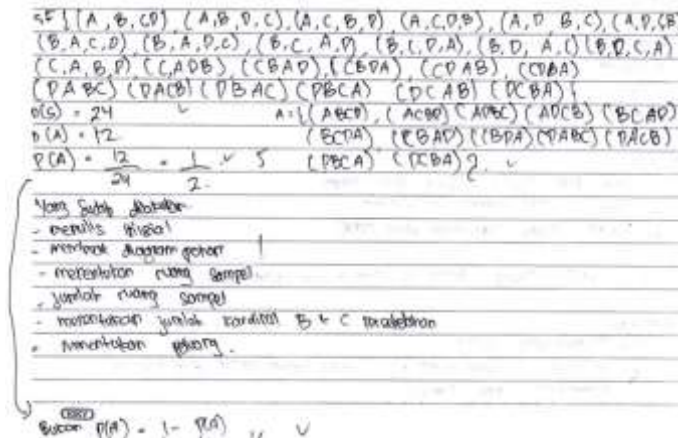 S = { (A, B, CD) (A,B, D, C), (A, C, B, D) (A, C, D, B), (A, D B, C), (A, D, CB)
(B, A, C, D) (B, A, D, C), (B, C A, D), (B, C, D, A), (B, D, A, C) (B, D, C, A)
(C, A, B, D) (C, A D B), (C B A D), (C B D A), (C D A B), (C D B A)
(D A B C) (D A C B) (D B A C) (D B C A) (D C A B) (D C B A) }
n(S) = 24 A = { (A B C D), (A C B D) (A D B C) (A D C B) (B C A D)
n (A) = 12 (B C D A) (C B A D) (C B D A) (D A B C) (D A C B)
P(A) = 12/24 = 1/2 5 (D B C A) (D C B A) }
Yang sudah dilakukan
- menulis inisial
- membuat diagram pohon
- menentukan ruang sampel.
- jumlah ruang sampel
- menentukan jumlah kardinal B & C bersebelahan
- menentukan peluang.
Bukan P(A) = 1 - P(A)